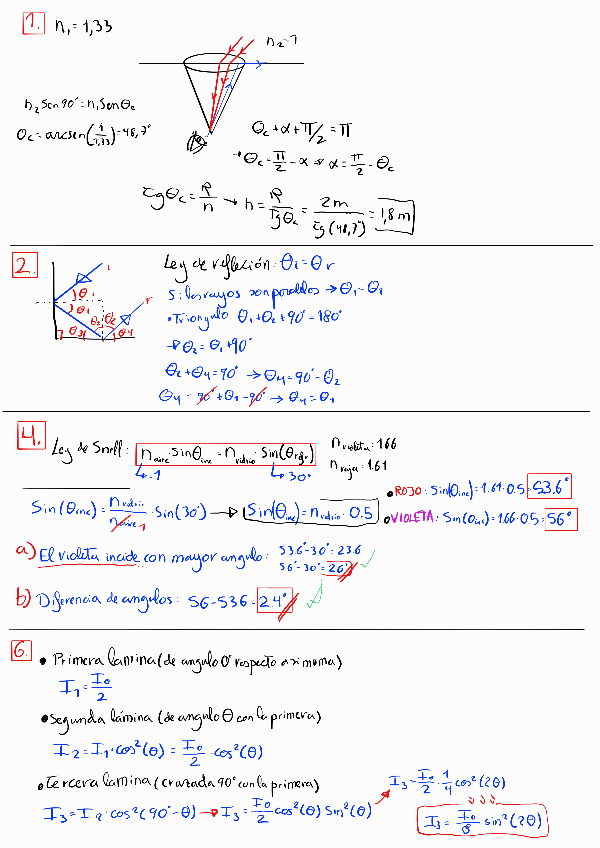 1. n₁ = 1,33
n₂ = 1
n₂ sen 90° = n₁ sen θc
θc = arcsen(1/1,33) = 48,7°
θc + α + π/2 = π
→ θc = π/2 - α ⇒ α = π/2 - θc
tg θc = R/h → h = R/tg θc = 2m/tg(48,7°) = 1,8 m
2. Ley de reflexión: θi = θr
Si los rayos son paralelos → θ₁ - θ₁
• Triangulo θ₁ + θ₂ + 90° = 180°
→ θ₂ = θ₁ + 90°
θ₂ + θ₄ = 90° → θ₄ = 90° - θ₂
θ₄ = 90° + θ₁ - 90° → θ₄ = θ₁
i
r
θ₁
θ₁
θ₂ θ₂
θ₃ θ₄
4. Ley de Snell: n aire · sinθinc = n vidrio · sin(θrefr)
→ 1
→ 30°
n violeta: 1.66
n roja: 1.61
Sin(θinc) = n vidrio/n aire 1 · Sin(30°) → Sin(θinc) = n vidrio · 0.5
• ROJO: Sin(θinc) = 1.61·0.5 = 53.6°
• VIOLETA: Sin(θinc) = 1.66·0.5 = 56°
a) El violeta incide con mayor angulo: 53.6°-30° = 23.6
56°-30° = 26° ✓
b) Diferencia de angulos: 56-53.6 = 2.4° ✓
6. • Primera lamina (de angulo 0° respecto a si misma)
I₁ = I₀/2
• Segunda lámina (de angulo θ con la primera)
I₂ = I₁·cos²(θ) = I₀/2 · cos²(θ)
• Tercera lamina (cruzada 90° con la primera)
I₃ = I₂·cos²(90°-θ) → I₃ = I₀/2 cos²(θ) sin²(θ)
I₃ = I₀/2 · 1/4 cos²(2θ)
I₃ = I₀/8 sin²(2θ)